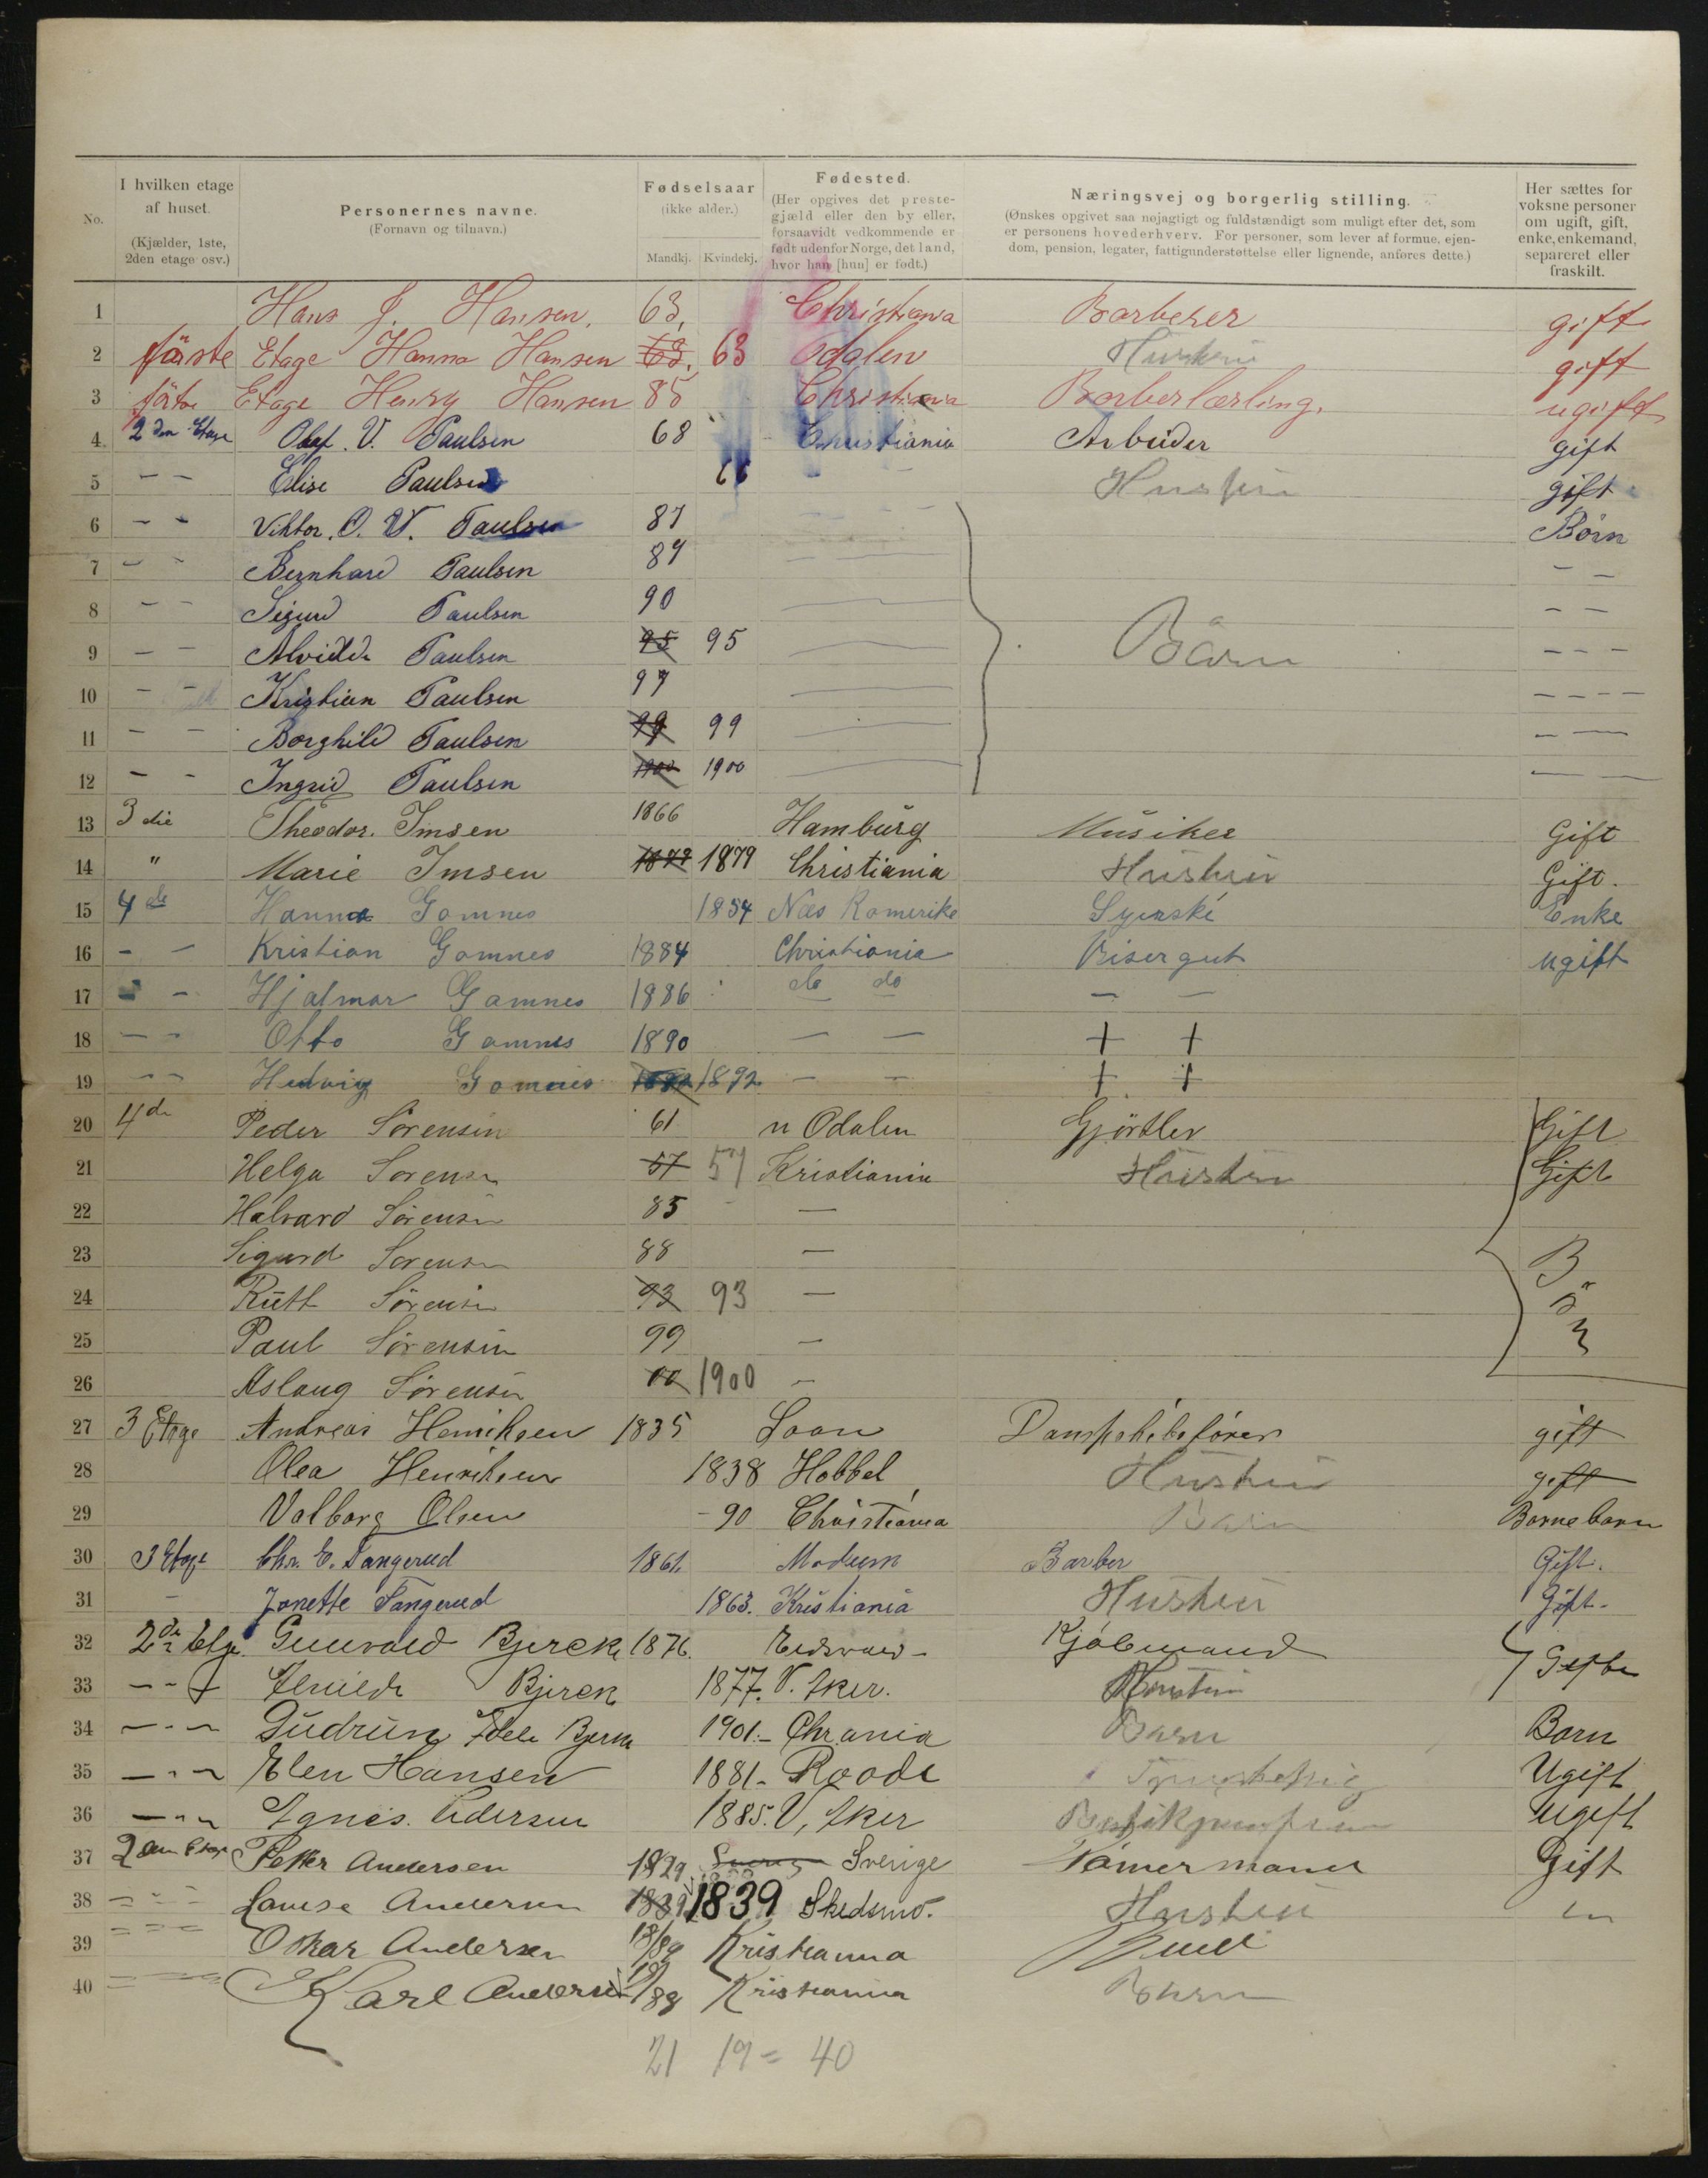 No.
I hvilken etage af huset.
(Kjælder, 1ste, 2den etage osv.)
Personernes navne.
(Fornavn og tilnavn.)
Fødselsaar
(ikke alder.)
Mandkj. Kvindekj.
Fødested.
(Her opgives det prestegjæld eller den by eller, forsaavidt vedkommende er født udenfor Norge, det land, hvor han [hun] er født.)
Næringsvej og borgerlig stilling.
(Ønskes opgivet saa nøjagtigt og fuldstændigt som muligt efter det, som er personens hovederhverv. For personer, som lever af formue, ejendom, pension, legater, fattigunderstøttelse eller lignende, anføres dette.)
Her sættes for voksne personer om ugift, gift, enke, enkemand, separeret eller fraskilt.
1 Hans J. Hansen. 63, Christiania Barberer gift
2 förste Etage Hanna Hansen 63, 63 Odalen Hustru gift
3 Etage Henry Hansen 85 Christiania Barberlærling. ugift
4 2den Etage Olaf. V. Paulsen 68 Christiania Arbeider gift
5 — — Elise Paulsen 66 — — Hustru gift
6 — — Viktor. O. W. Paulsen 87 — — Börn
7 — — Bernhard Paulsen 89 — — —
8 — — Sigurd Paulsen 90 — — —
9 — — Alvilde Paulsen 95 95 — Börn — — —
10 — — Kristian Paulsen 97 — — — — —
11 — — Borghild Paulsen 99 99 — — —
12 — — Ingrid Paulsen 1900 1900 — — —
13 3die Theodor. Imsen 1866 Hamburg Musiker Gift
14 " Marie Imsen 1879 1879 Christiania Hustru Gift.
15 4de Hanna Gomnes 1854 Næs Romerike Syerske Enke
16 — — Kristian Gomnes 1884 Christiania Visergut ugift
17 — — Hjalmar Gomnes 1886 do do — —
18 — — Otto Gomnes 1890 — — + +
19 — — Hedvig Gomnes 1892 1892 — — + +
20 4de Peder Sörensen 61 n Odalen Gjörtler Gift
21 Helga Sorensen 57 57 Kristiania Hustru Gift
22 Halvard Sörensen 85 —
23 Sigurd Sorensen 88 — Börn
24 Rutt Sörensen 93 93 —
25 Paul Sörensen 99 —
26 Aslaug Sörensen 00 1900 —
27 3 Etage Andreas Henriksen 1835 Soon gift
28 Olea Henriksen 1838 Hobbel Hustru gift
29 Valborg Olsen - 90 Christiania Barn Barnebarn
30 3 Etage Chr. E. Tangerud 1861. Modum Barber Gift.
31 - Jonette Tangerud 1863. Kristiania Hustru Gift.
32 2de Etge. Gunvald Bjerck 1876. Eidsvold - Kjöbmand Gifte
33 — " — Bjerck 1877. V. Aker. Hustru
34 — " — Gudrun Adele Bjerck 1901.- Chrania Barn Barn
35 — " — Elen Hansen 1881- Raade Ugift
36 — " — Agnes. Pedersen 1885. V, Aker ugift
37 2den Etage Petter Andersen 1829 Sverig Sverige Tömermand Gift
38 = = = Lovise Andersen 1839 1839 Skedsmo. Hustru "
39 = = = Oskar Andersen 18/89 Kristianna
40 = = Karl Andersen 18/88 Kristianna Barn
21 19 = 40